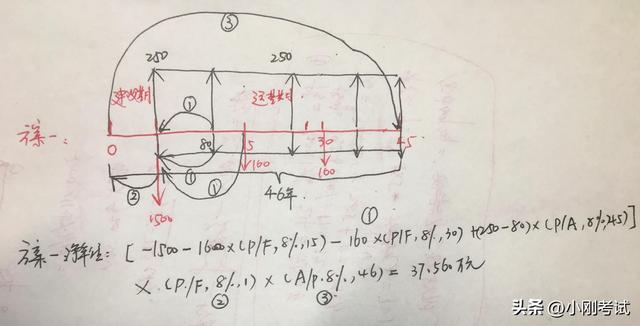 ③
250
250
建设期
运营期
①
方案一:
0
80
15
30
45
160
160
①
①
②
46年
1500
①
方案一净年值: [ -1500 - 1600×(P/F, 8%, 15) - 160×(P/F, 8%, 30) + (250-80)×(P/A, 8%, 45)]
× (P/F, 8%, 1) × (A/P. 8%, 46) = 37.560万元
②
③
头条 @小刚考试